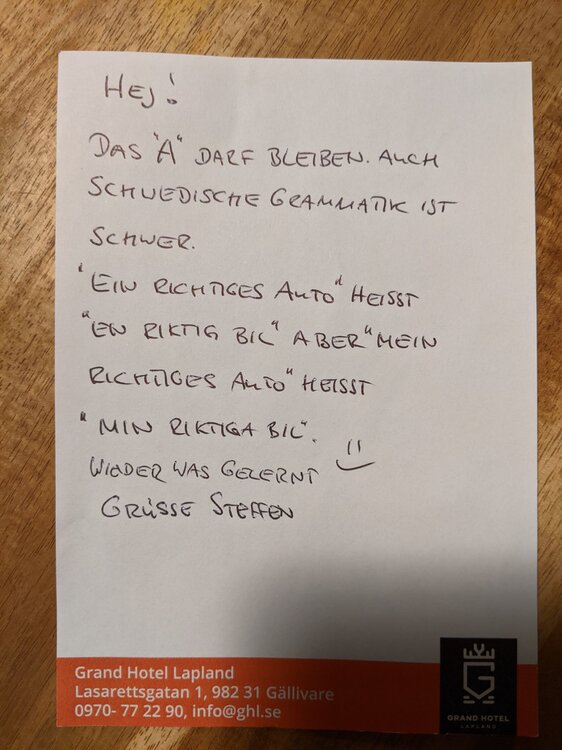 HEJ!
DAS "A" DARF BLEIBEN. AUCH
SCHWEDISCHE GRAMMATIK IST
SCHWER.
"EIN RICHTIGES AUTO" HEISST
"EN RIKTIG BIL" ABER "MEIN
RICHTIGES AUTO" HEISST
"MIN RIKTIGA BIL".
WIEDER WAS GELERNT
GRÜSSE STEFFEN
Grand Hotel Lapland
Lasarettsgatan 1, 982 31 Gällivare
0970- 77 22 90, info@ghl.se
GRAND HOTEL
LAPLAND